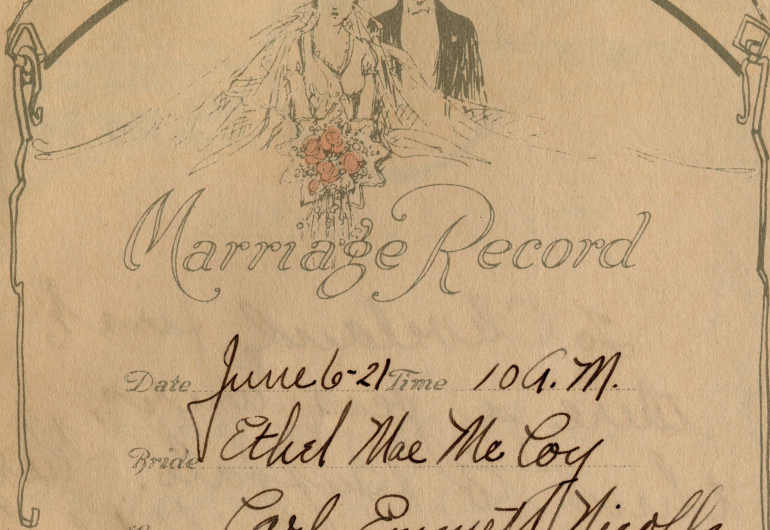 Marriage Record
Date June 6-21 Time 10 A.M.
Bride Ethel Mae Mc Coy
Carl Emmett Nicolls